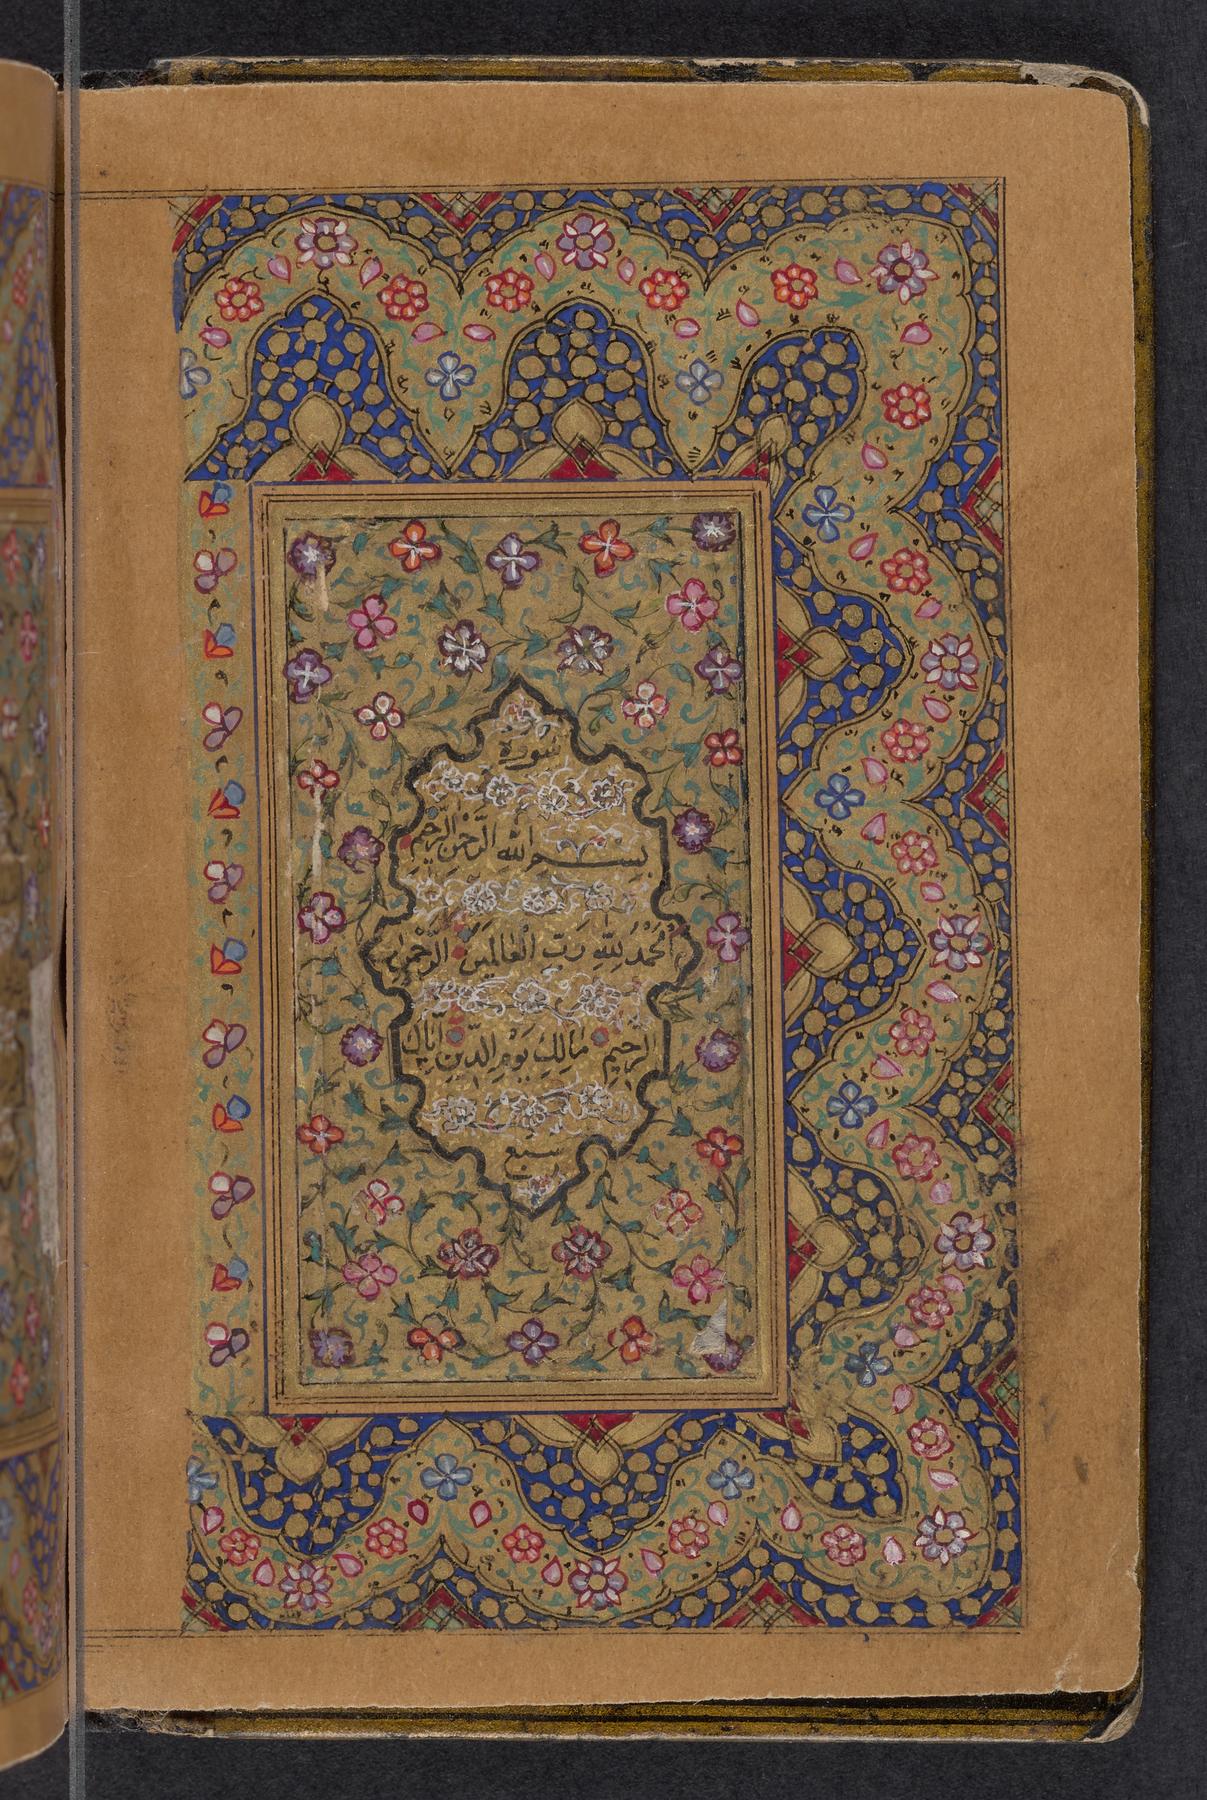 سورة
بِسْمِ اللهِ الرَّحْمٰنِ الرَّحِيمِ
اَلْحَمْدُ لِلّٰهِ رَبِّ الْعَالَمِينَ الرَّحْمٰنِ
الرَّحِيمِ مَالِكِ يَوْمِ الدِّينِ اِيَّاكَ
سبع